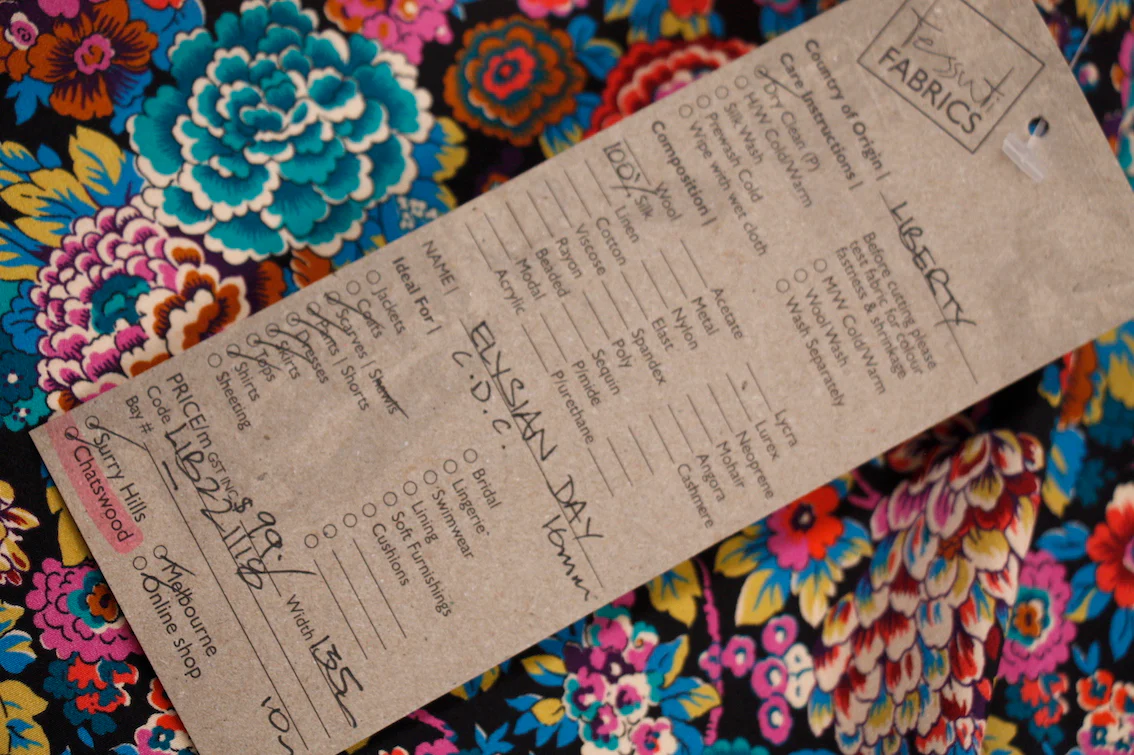 Tessuti
FABRICS
Country of Origin | LIBERTY
Care Instructions |
Dry Clean (P)
H/W Cold/Warm
Silk Wash
Prewash Cold
Wipe with wet cloth
Before cutting please
test fabric for colour
fastness & shrinkage
M/W Cold/Warm
Wool Wash
Wash Separately
Composition |
Wool
100% Silk
Linen
Cotton
Viscose
Rayon
Beaded
Modal
Acrylic
Acetate
Metal
Nylon
Elast
Spandex
Poly
Sequin
P/mide
P/urethane
Lycra
Lurex
Neoprene
Mohair
Angora
Cashmere
NAME | ELYSIAN DAY
C.D.C. 16mm
Ideal For |
Jackets
Coats
Scarves | Shawls
Pants | Shorts
Dresses
Skirts
Tops
Shirts
Sheeting
Bridal
Lingerie
Swimwear
Lining
Soft Furnishings
Cushions
PRICE/m GST INC $99.- Width 135
Code LIB221118
Bay #
Surry Hills
Chatswood
Melbourne
Online shop